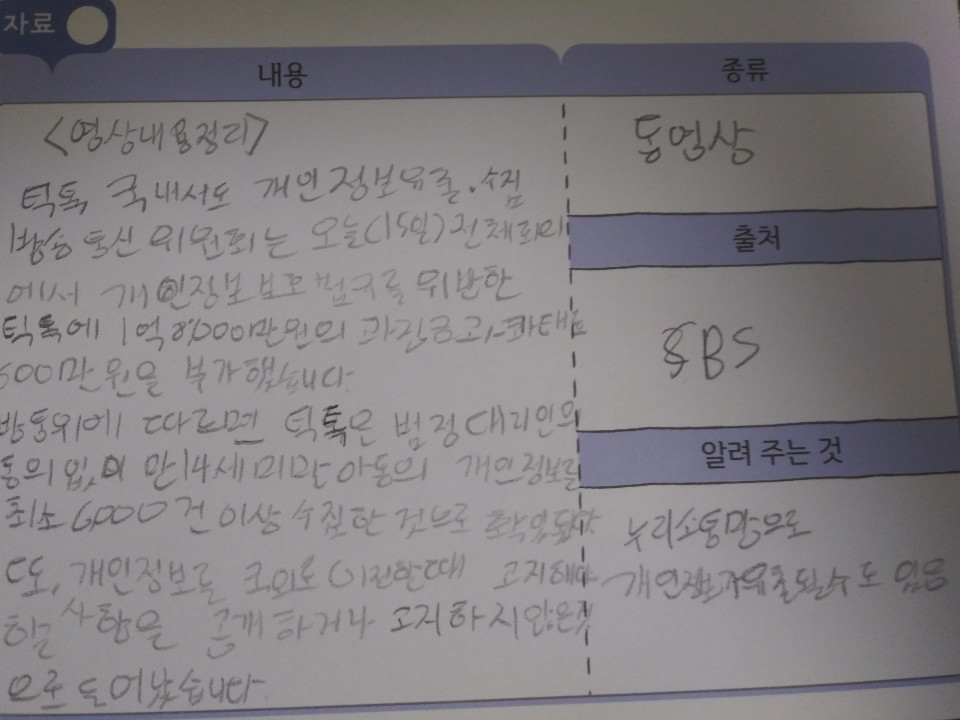 자료
내용
<영상내용정리>
틱톡 국내서도 개인정보유출·수집
방송통신 위원회는 오늘(15일) 전체회의
에서 개인정보보호 법규를 위반한
틱톡에 1억8,000만원의 과징금과 과태료
600만원을 부가했습니다.
방통위에 따르면 틱톡은 법정대리인의
동의없이 만14세미만 아동의 개인정보를
최소 6000건 이상 수집한 것으로 확인됐다
또, 개인정보를 국외로 이전할때 고지해야
할 사항을 공개하거나 고지하지않은것
으로 드어났습니다.
종류
동영상
출처
SBS
알려 주는 것
누리소통망으로
개인정보가유출될수도 있음